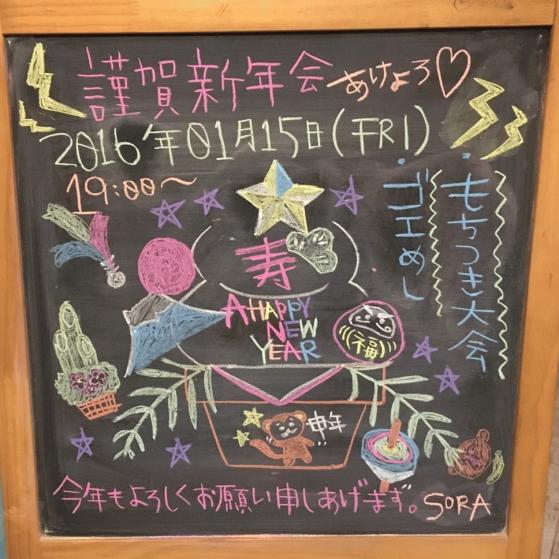 謹賀新年会 あけよろ♡
2016年01月15日(FRI)
19:00〜
・もちつき大会
・ゴエめし
寿
A HAPPY
NEW
YEAR
福
申年
今年もよろしくお願い申しあげます。 SORA